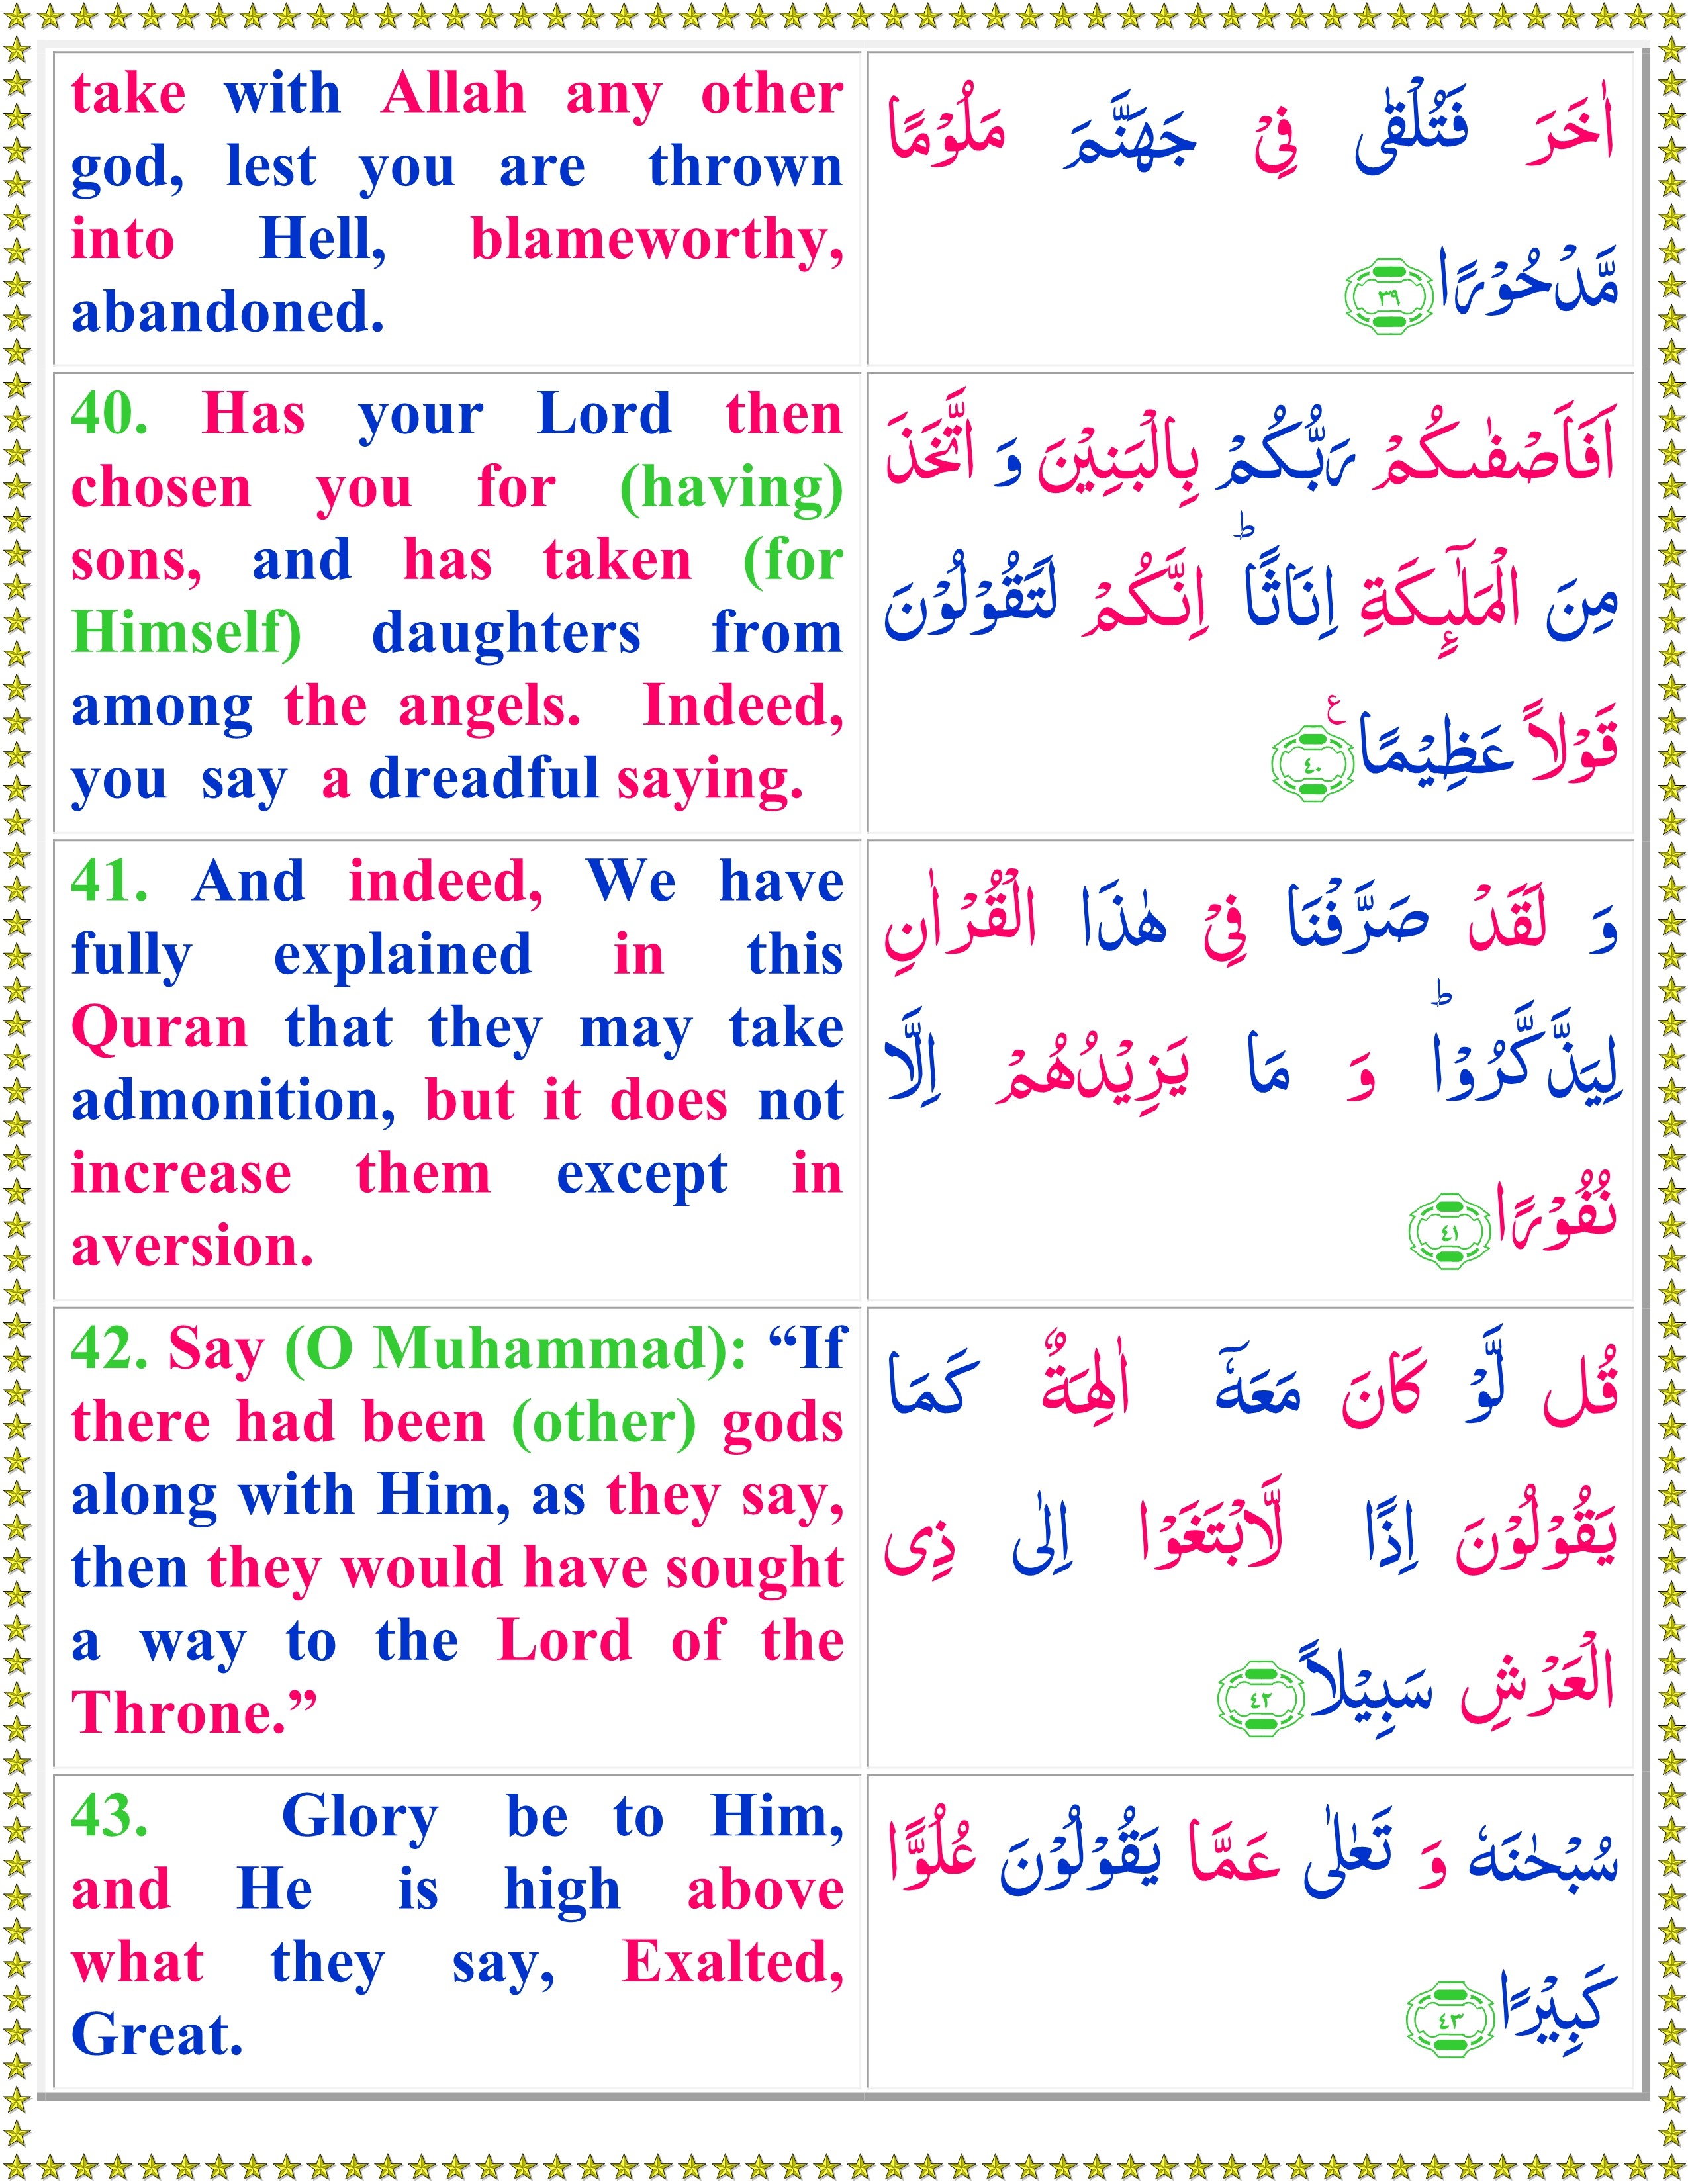 take with Allah any other
god, lest you are thrown
into Hell, blameworthy,
abandoned.
اٰخَرَ فَتُلْقٰى فِىْ جَهَنَّمَ مَلُوْمًا
مَّدْحُوْرًا ٣٩
40. Has your Lord then
chosen you for (having)
sons, and has taken (for
Himself) daughters from
among the angels. Indeed,
you say a dreadful saying.
اَفَاَصْفٰٮكُمْ رَبُّكُمْ بِالْبَنِيْنَ وَ اتَّخَذَ
مِنَ الْمَلٰٓٮِٕكَةِ اِنَاثًا‌ ؕ اِنَّكُمْ لَتَقُوْلُوْنَ
قَوْلاً عَظِيْمًا ع ٤٠
41. And indeed, We have
fully explained in this
Quran that they may take
admonition, but it does not
increase them except in
aversion.
وَ لَقَدْ صَرَّفْنَا فِىْ هٰذَا الْقُرْاٰنِ
لِيَذَّكَّرُوْا ؕ وَ مَا يَزِيْدُهُمْ اِلَّا
نُفُوْرًا ٤١
42. Say (O Muhammad): “If
there had been (other) gods
along with Him, as they say,
then they would have sought
a way to the Lord of the
Throne.”
قُل لَّوْ كَانَ مَعَهٗۤ اٰلِهَةٌ كَمَا
يَقُوْلُوْنَ اِذًا لَّابْتَغَوْا اِلٰى ذِى
الْعَرْشِ سَبِيْلاً ٤٢
43. Glory be to Him,
and He is high above
what they say, Exalted,
Great.
سُبْحٰنَهٗ وَ تَعٰلٰى عَمَّا يَقُوْلُوْنَ عُلُوًّا
كَبِيْرًا ٤٣